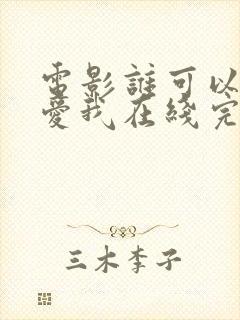 電影誰可以
愛我在綫完
三木李子